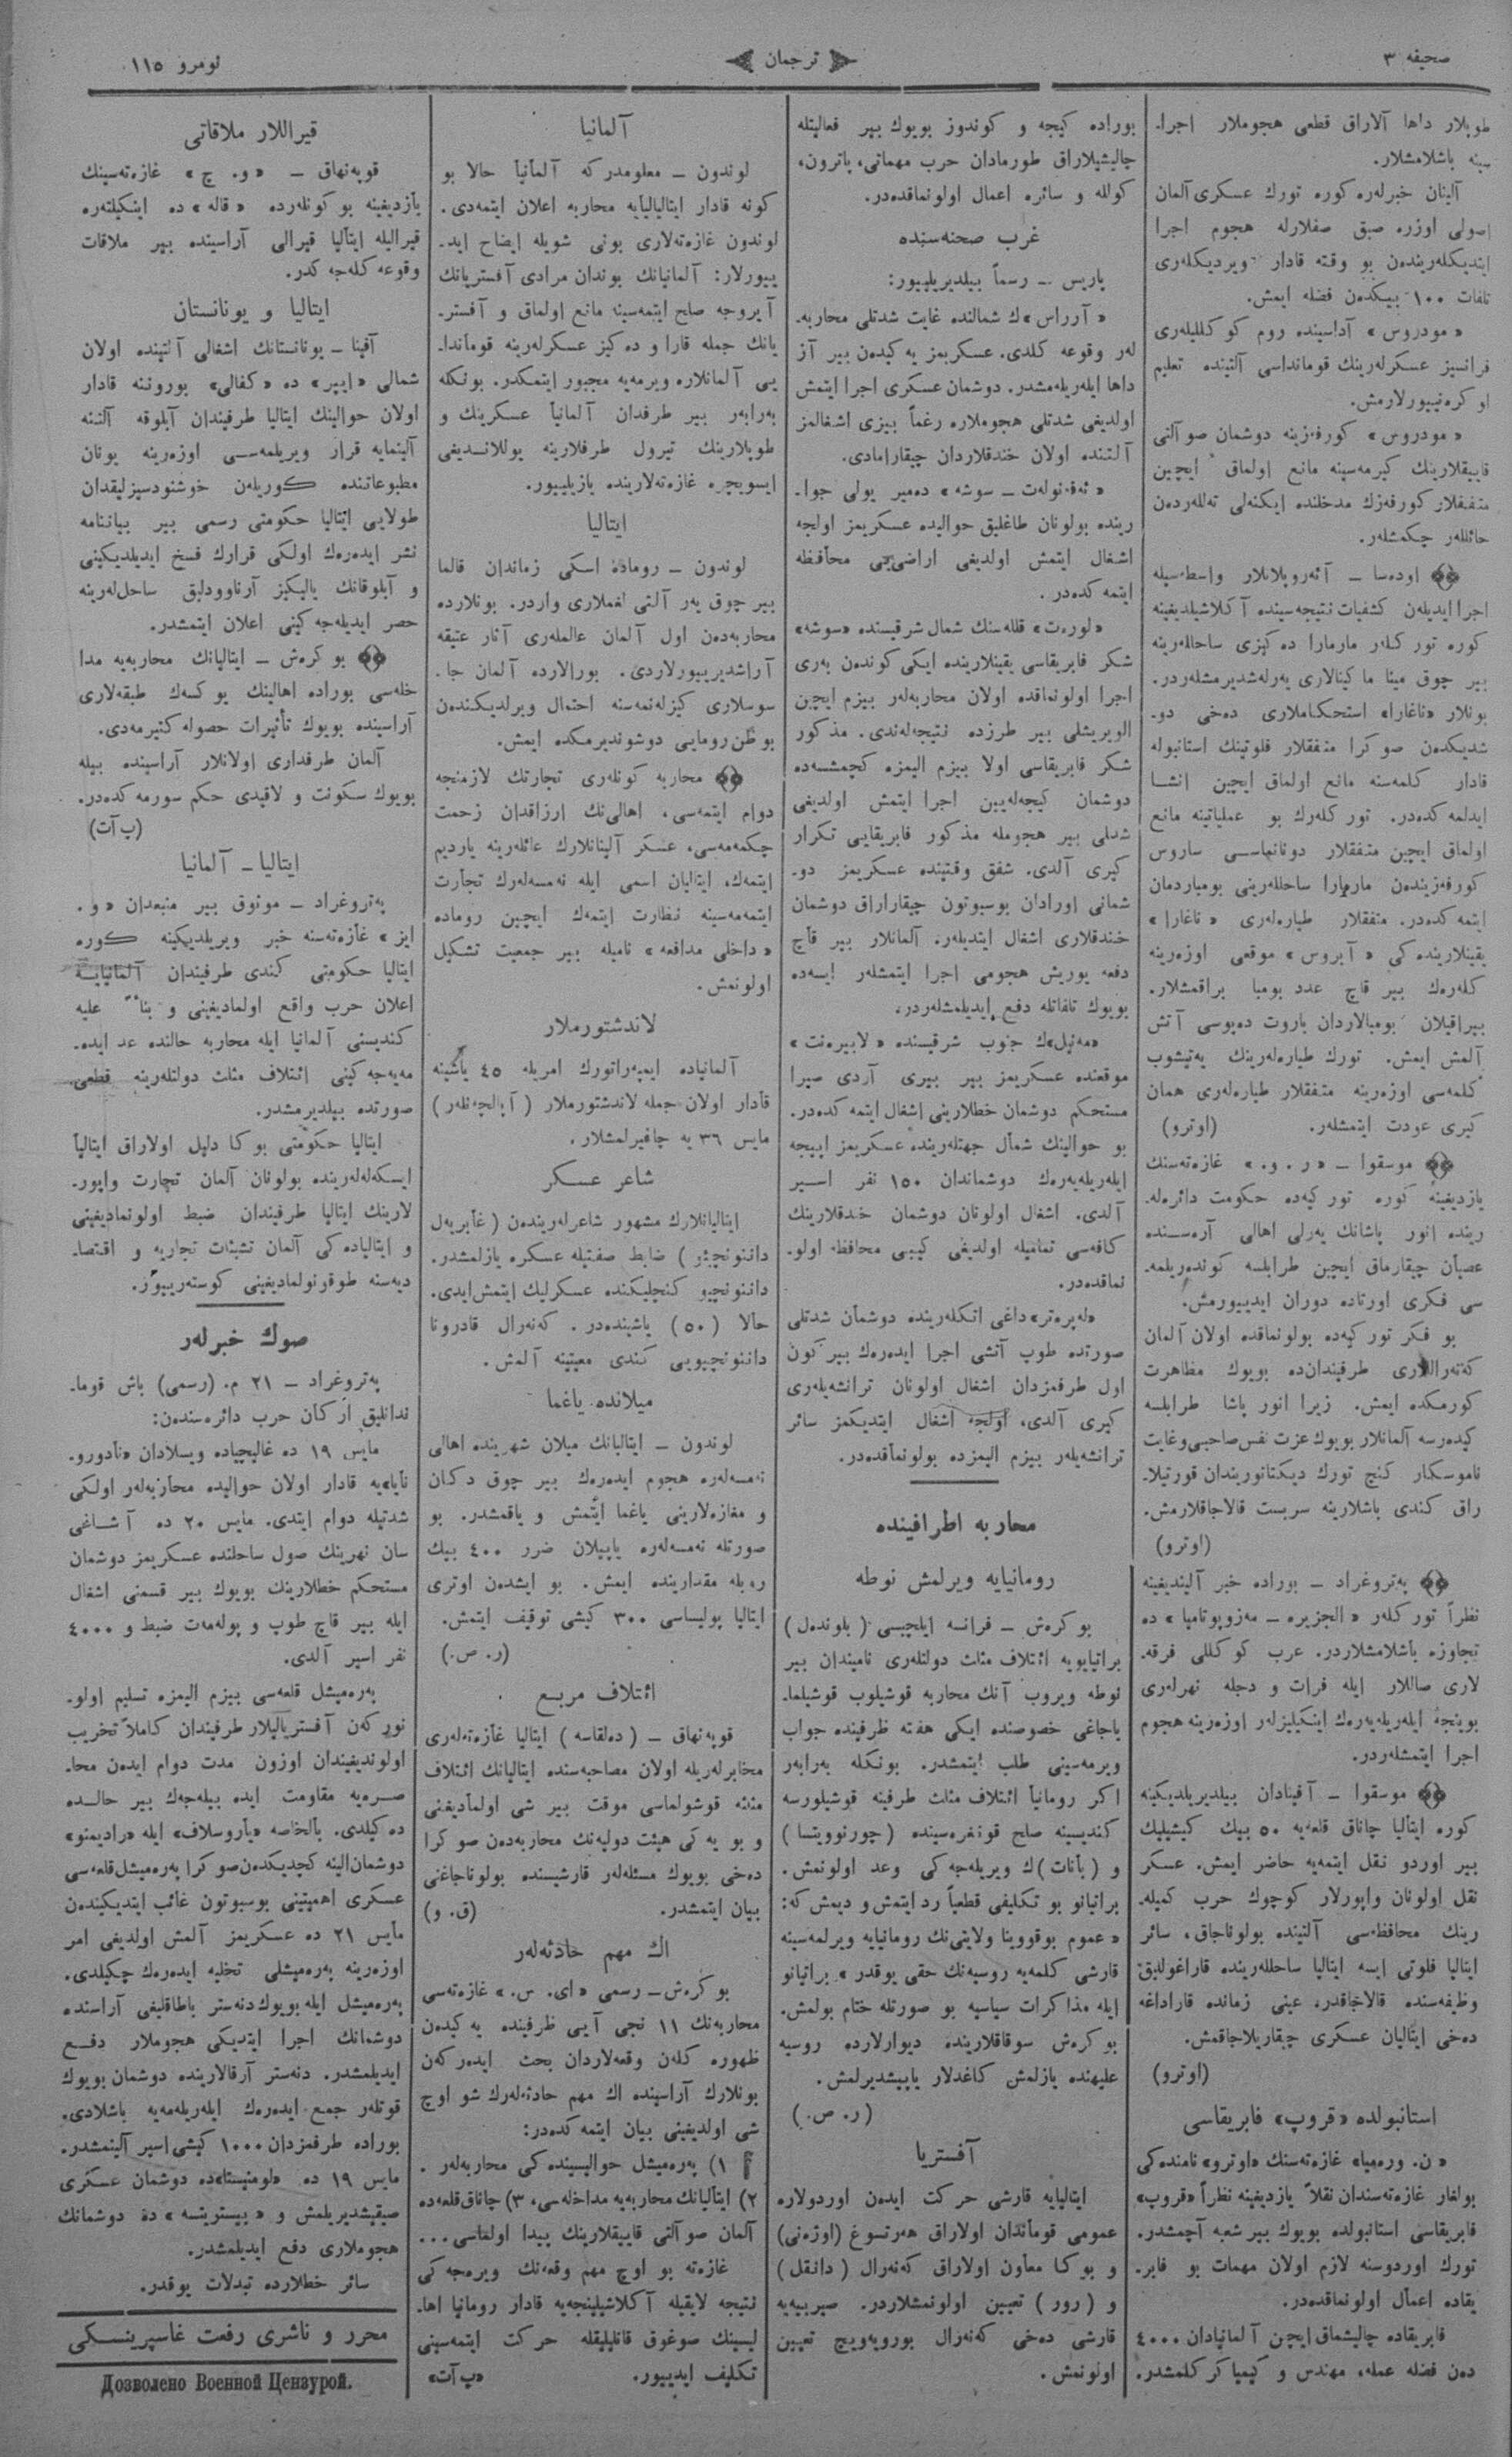 صحیفه ۳
ترجمان
نومرو ۱۱۵
طوپلار داها آلاراق قطعی هجوملار اجرا-
سینه باشلامشلار.
آلینان خبرلەرە کورە تورك عسکری آلمان
اصولی اوزرە صیق صفلارلە هجوم اجرا
ایتدیکلەریندەن بو وقتە قادار ویردیکلەری
تلفات ۱۰۰ بیکدەن فضلە ایمش.
« مودروس » آداسیندە روم کوکللیلەری
فرانسیز عسکرلەرینك قوماندانسی آلتیندە تعلیم
اوکرەنیورلارمش.
« مودروس » کورفزینە دوشمان صوآلتی
قاییقلارینك کیرمەسینە مانع اولماق ایچین
متفقلار کورفەزك مدخلندە ایکنەلی تەللەردەن
حائللەر چکمشلەر.
اودەسا – آئەروپلانلار واسطەسیلە
اجرا ایدیلەن کشفیات نتیجەسیندە آکلاشیلدیغینە
کورە تورکلەر مارمارا دەکیزی ساحللەرینە
بیر چوق مینا ماکینالاری یەرلەشدیرمشلەردر.
بونلار «ناغارا» استحکاملاری دەخی دو-
شدیکدەن صوکرا متفقلار فلوتینك استانبولە
قادار کلمەسنە مانع اولماق ایچین انشا
ایدلمەکدەدر. تورکلەرك بو عملیاتینە مانع
اولماق ایچین متفقلار دونانماسی ساروس
کورفەزیندەن مارمارا ساحللەرینی بومباردمان
ایتمەکدەدر. متفقلار طیارەلەری « ناغارا »
یقینلاریندەکی « آبروس » موقعی اوزەرینە
کلەرەك بیر قاچ عدد بومبا براقمشلار.
بیراقیلان بومبالاردان باروت دەپوسی آتش
آلمش ایمش. تورك طیارەلەرینك یەتیشوب
کلمەسی اوزەرینە متفقلار طیارەلەری همان
کیری عودت ایتمشلەر. (اوترو)
موسقوا – « ر. و. » غازەتەسنك
یازدیغینە کورە تورکیەدە حکومت دائرەلە-
ریندە انور پاشانك یەرلی اهالی آرەسندە
عصیان چیقارماق ایچین طرابلسە کوندەریلمە-
سی فکری اورتادە دوران ایدییورمش.
بو فکر تورکیەدە بولونماقدە اولان آلمان
کەنەراللاری طرفیندان دە بویوك مظاهرت
کورمکدە ایمش. زیرا انور پاشا طرابلسە
کیدەرسە آلمانلار بویوك عزت نفس صاحبی و غایت
ناموسکار کنج تورك دیکتاتوریندان قورتیلا-
راق کندی باشلارینە سربست قالاجاقلارمش.
(اوترو)
پەتروغراد – بورادە خبر آلیندیغینە
نظراً تورکلەر « الجزیرە – مەزوپوتامیا » دە
تجاوزە باشلامشلاردر. عرب کوکللی فرقە-
لاری صاللار ایلە فرات و دجلە نهرلەری
بوینجە ایلەریلەیەرەك اینکیلیزلەر اوزەرینە هجوم
اجرا ایتمشلەردر.
موسقوا – آفینادان بیلدیریلدیکینە
کورە ایتالیا چاناق قلعەیە ۵۰ بیك کیشیلیك
بیر اوردو نقل ایتمەیە حاضر ایمش. عسکر
نقل اولونان واپورلار کوچوك حرب کمیلە-
رینك محافظەسی آلتیندە بولوناجاق، سائر
ایتالیا فلوتی ایسە ایتالیا ساحللەریندە قاراغوللیق
وظیفەسندە قالاجاقدر. عینی زماندە قاراداغە
دەخی ایتالیان عسکری چیقاریلاجاقمش.
(اوترو)
استانبولدە «قروپ» فابریقاسی
« ن. ورەمیا» غازەتەسنك «اوترو» نامندەکی
بولغار غازەتەسندان نقلاً یازدیغینە نظراً «قروپ»
فابریقاسی استانبولدە بویوك بیر شعبە آچمشدر.
تورك اوردوسنە لازم اولان مهمات بو فابر-
یقادە اعمال اولونماقدەدر.
فابریقادە چالیشماق ایچین آلمانیادان ۴۰۰۰
دەن فضلە عملە، مهندس و کیمیاکر کلمشدر.
بورادە کیجە و کوندوز بویوك بیر فعالیتلە
چالیشیلاراق طورمادان حرب مهماتی، پاترون،
کوللە و سائرە اعمال اولونماقدەدر.
غرب صحنەسندە
پاریس – رسماً بیلدیریلییور:
« آرراس»ك شمالندە غایت شدتلی محاربە-
لەر وقوعە کلدی. عسکریمز یەکیدەن بیر آز
داها ایلەریلەمشدر. دوشمان عسکری اجرا ایتمش
اولدیغی شدتلی هجوملارە رغماً بیزی اشغالمز
آلتندە اولان خندقلاردان چیقارامادی.
« ئەفنولەت – سوشە » دەمیر یولی جوا-
ریندە بولونان طاغلیق حوالیدە عسکریمز اولجە
اشغال ایتمش اولدیغی اراضی‌یی محافظە
ایتمەکدەدر.
«لورەت» قللەسنك شمال شرقیسندە «سوشە»
شکر فابریقاسی یقینلاریندە ایکی کوندەن بەری
اجرا اولونماقدە اولان محاربەلەر بیزم ایچین
الویریشلی بیر طرزدە نتیجەلەندی. مذکور
شکر فابریقاسی اولا بیزم الیمزە کچمشسەدە
دوشمان کیجەلەیین اجرا ایتمش اولدیغی
شدلی بیر هجوملە مذکور فابریقایی تکرار
کیری آلدی. شفق وقتیندە عسکریمز دو-
شمانی اورادان بوسبوتون چیقاراراق دوشمان
خندقلاری اشغال ایتدیلەر. آلمانلار بیر قاچ
دفعە یوریش هجومی اجرا ایتمشلەر ایسەدە
بویوك تلفاتلە دفع ایدیلمشلەردر.
«مەنیل»ك جنوب شرقیسندە « لابیرەنت »
موقعندە عسکریمز بیر بیری آردی صیرا
مستحکم دوشمان خطلارینی اشغال ایتمەکدەدر.
بو حوالینك شمال جهتلەریندە عسکریمز ایییجە
ایلەریلەیەرەك دوشماندان ۱۵۰ نفر اسیر
آلدی. اشغال اولونان دوشمان خندقلارینك
کافەسی تمامیلە اولدیغی کیبی محافظە اولو-
نماقدەدر.
«لەپرەتر» داغی اتکلەریندە دوشمان شدتلی
صورتدە طوپ آتشی اجرا ایدەرەك بیر کون
اول طرفمزدان اشغال اولونان ترانشەیلەری
کیری آلدی، اولجە اشغال ایتدیکمز سائر
ترانشەیلەر بیزم الیمزدە بولونماقدەدر.
محاربە اطرافیندە
رومانیایە ویرلمش نوطە
بوکرەش – فرانسە ایلچیسی (بلوندەل)
براتیانویە ائتلاف مثلث دولتلەری نامیندان بیر
نوطە ویروب آنك محاربە قوشیلوب قوشیلما-
یاجاغی خصوصندە ایکی هفتە ظرفیندە جواب
ویرمەسینی طلب ایتمشدر. بونکلە بەرابەر
اکر رومانیا ائتلاف مثلث طرفینە قوشیلورسە
کندیسینە صلح قونفرەسیندە (چورنوویتسا)
و (بانات)ك ویریلەجەکی وعد اولونمش.
براتیانو بو تکلیفی قطعیاً رد ایتمش و دیمش کە:
« عموم بوقووینا ولایتی‌نك رومانیایە ویرلمەسینە
قارشی کلمەیە روسیەنك حقی یوقدر » براتیانو
ایلە مذاکرات سیاسیە بو صورتلە ختام بولمش.
بوکرەش سوقاقلاریندە دیوارلاردە روسیە
علیهندە یازلمش کاغدلار یاپیشدیرلمش.
(ر. ص.)
آفستریا
ایتالیایە قارشی حرکت ایدەن اوردولارە
عمومی قوماندان اولاراق هەرتسوغ (اوژەنی)
و بوکا معاون اولاراق کەنەرال (دانقل)
و (رور) تعیین اولونمشلاردر. صیربیەیە
قارشی دەخی کەنەرال بورویەویچ تعیین
اولونمش.
آلمانیا
لوندون – معلومدرکە آلمانیا حالا بو
کونە قادار ایتالیالیایە محاربە اعلان ایتمەدی.
لوندون غازەتەلاری بونی شویلە ایضاح اید-
ییورلار: آلمانیانك بوندان مرادی آفستریانك
آیروجە صلح ایتمەسینە مانع اولماق و آفستر-
یانك جملە قارا و دەکیز عسکرلەرینە قوماندا-
یی آلمانلارە ویرمەیە مجبور ایتمکدر. بونکلە
بەرابەر بیر طرفدان آلمانیا عسکرینك و
طوپلارینك تیرول طرفلارینە یوللاندیغی
ایسویچرە غازەتەلاریندە یازیلییور.
ایتالیا
لوندون – رومادە اسکی زماندان قالما
بیر چوق یەر آلتی لغملاری واردر. بونلاردە
محاربەدەن اول آلمان عالملەری آثار عتیقە
آراشدیرییورلاردی. بورالاردە آلمان جا-
سوسلاری کیزلەنمەسنە احتمال ویرلدیکندەن
بو ظن رومایی دوشوندیرمکدە ایمش.
محاربە کونلەری تجارتك لازمنجە
دوام ایتمەسی، اهالی‌نك ارزاقدان زحمت
چکمەمەسی، عسکر آلینانلارك عائلەرینە یاردیم
ایتمەك، ایتالیان اسمی ایلە نەمسەلەرك تجارت
ایتمەمەسینە نظارت ایتمەك ایچین رومادە
« داخلی مدافعە » نامیلە بیر جمعیت تشکیل
اولونمش.
لاندشتورملار
آلمانیادە ایمپەراتورك امریلە ۴۵ یاشینە
قادار اولان جملە لاندشتورملار ( آپالچەنلەر )
مایس ۳۶ یە چاقیرلمشلار.
شاعر عسکر
ایتالیانلارك مشهور شاعرلەریندەن (غابریەل
داننونچیئو) ضابط صفتیلە عسکرە یازلمشدر.
داننونچیو کنچلیکندە عسکرلیك ایتمش‌ایدی.
حالا (۵۰) یاشیندەدر. کەنەرال قادرونا
داننونچیویی کندی معیتینە آلمش.
میلاندە یاغما
لوندون – ایتالیانك میلان شهریندە اهالی
نەمسەلەرە هجوم ایدەرەك بیر چوق دکان
و مغازەلارینی یاغما ایتمش و یاقمشدر. بو
صورتلە نەمسەلەرە یاپیلان ضرر ۴۰۰ بیك
روبلە مقداریندە ایمش. بو ایشدەن اوتری
ایتالیا پولیساسی ۳۰۰ کیشی توقیف ایتمش.
(ر. ص.)
ائتلاف مربع
قوپەنهاق – (دەلقاسە) ایتالیا غازەتەلەری
مخابرلەریلە اولان مصاحبەسندە ایتالیانك ائتلاف
مثلثە قوشولماسی موقت بیر شی اولمادیغنی
و بو یەکی هیئت دولیەنك محاربەدەن صوکرا
دەخی بویوك مسئلەلەر قارشیسندە بولوناجاغنی
بیان ایتمشدر. (ق. و)
اك مهم حادثەلەر
بوکرەش – رسمی « ای. س. » غازەتەسی
محاربەنك ۱۱ نجی آیی ظرفیندە یەکیدەن
ظهورە کلەن وقعەلاردان بحث ایدەرکەن
بونلارك آراسیندە اك مهم حادثەلەرك شو اوچ
شی اولدیغینی بیان ایتمەکدەدر:
۱) پەرەمیشل حوالیسیندەکی محاربەلەر.
۲) ایتالیانك محاربەیە مداخلەسی، ۳) چاناق قلعەدە
آلمان صوآلتی قاییقلارینك پیدا اولماسی...
غازەتە بو اوچ مهم وقعەنك ویرەجەکی
نتیجە لایقیلە آکلاشیلینجەیە قادار رومانیا اها-
لیسینك صوغوق قانلیلیقلە حرکت ایتمەسینی
تکلیف ایدییور. «پ آت»
قیراللار ملاقاتی
قوپەنهاق – « و. چ » غازەتەسینك
یازدیغینە بو کونلەردە « قالە » دە اینکیلتەرە
قیرالیلە ایتالیا قیرالی آراسیندە بیر ملاقات
وقوعە کلەجەکدر.
ایتالیا و یونانستان
آفینا – یونانستانك اشغالی آلتیندە اولان
شمالی «ایپر» دە «کفالی» بوروننە قادار
اولان حوالینك ایتالیا طرفیندان آبلوقە آلتنە
آلینمایە قرار ویریلمەسی اوزەرینە یونان
مطبوعاتندە کوریلەن خوشنودسیزلیقدان
طولایی ایتالیا حکومتی رسمی بیر بیاننامە
نشر ایدەرەك اولکی قرارك فسخ ایدیلدیکینی
و آبلوقانك یالیکیز آرناوودلیق ساحل‌لەرینە
حصر ایدیلەجەکینی اعلان ایتمشدر.
بوکرەش – ایتالیانك محاربەیە مدا
خلەسی بورادە اهالینك یوکسەك طبقەلاری
آراسیندە بویوك تأثیرات حصولە کتیرمەدی.
آلمان طرفداری اولانلار آراسیندە بیلە
بویوك سکونت و لاقیدی حکم سورمەکدەدر.
(پ آت)
ایتالیا – آلمانیا
پەتروغراد – موثوق بیر منبعدان « و.
ایز » غازەتەسنە خبر ویریلدیکینە کورە
ایتالیا حکومتی کندی طرفیندان آلمانیایە
اعلان حرب واقع اولمادیغینی و بناءً علیە
کندیسنی آلمانیا ایلە محاربە حالندە عد ایدە-
مەیەجەکینی ائتلاف مثلث دولتلەرینە قطعی
صورتدە بیلدیرمشدر.
ایتالیا حکومتی بوکا دلیل اولاراق ایتالیا
ایسکەلەلەریندە بولونان آلمان تجارت واپور-
لارینك ایتالیا طرفیندان ضبط اولونمادیغینی
و ایتالیادەکی آلمان تشبثات تجاریە و اقتصا-
دیەسنە طوقونولمادیغینی کوستەرییور.
صوك خبرلەر
پەتروغراد – ۲۱ م. (رسمی) باش قوما-
ندانلیق ارکان حرب دائرەسندەن:
مایس ۱۹ دە غالیچیادە ویسلادان «نادورو-
نایا»یە قادار اولان حوالیدە محاربەلەر اولکی
شدتیلە دوام ایتدی. مایس ۲۰ دە آشاغی
سان نهرینك صول ساحلندە عسکریمز دوشمان
مستحکم خطلارینك بویوك بیر قسمنی اشغال
ایلە بیر قاچ طوپ و پولەمەت ضبط و ۴۰۰۰
نفر اسیر آلدی.
پەرەمیشل قلعەسی بیزم الیمزە تسلیم اولو-
نورکەن آفستریالیلار طرفیندان کاملاً تخریب
اولوندیغیندان اوزون مدت دوام ایدەن محا-
صرەیە مقاومت ایدە بیلەجەك بیر حالدە
دەکیلدی. بالخاصە «یاروسلاف» ایلە «رادیمنو»
دوشمان الینە کچدیکدەن صوکرا پەرەمیشل قلعەسی
عسکری اهمیتینی بوسبوتون غائب ایتدیکیندەن
مایس ۲۱ دە عسکریمز آلمش اولدیغی امر
اوزەرینە پەرەمیشلی تخلیە ایدەرەك چکیلدی.
پەرەمیشل ایلە بویوك دنەستر باطاقلیغی آراسندە
دوشمانك اجرا ایتدیکی هجوملار دفع
ایدیلمشدر. دنەستر آرقالاریندە دوشمان بویوك
قوتلەر جمع ایدەرەك ایلەریلەمەیە باشلادی.
بورادە طرفمزدان ۱۰۰۰ کیشی اسیر آلینمشدر.
مایس ۱۹ دە «لومنیستا»دە دوشمان عسکری
صیقیشدیریلمش و « بیستریتسە » دە دوشمانك
هجوملاری دفع ایدیلمشدر.
سائر خطلاردە تبدلات یوقدر.
محرر و ناشری رفعت غاسپرینسکی
Дозволено Военной Цензурой.